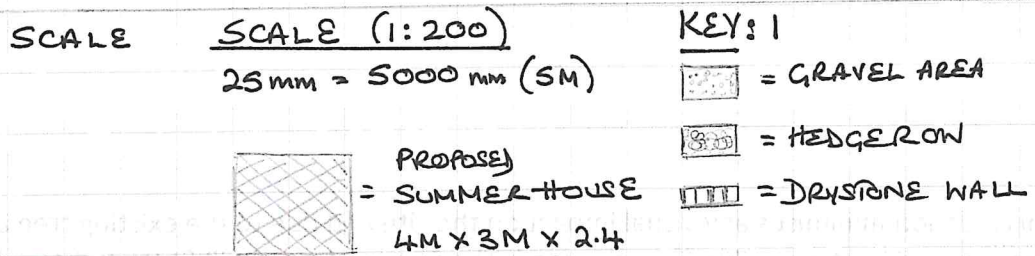 SCALE
SCALE (1:200)
25mm = 5000 mm (5M)
PROPOSED
= SUMMER HOUSE
4M X 3M X 2.4
KEY: 1
= GRAVEL AREA
= HEDGEROW
= DRYSTONE WALL